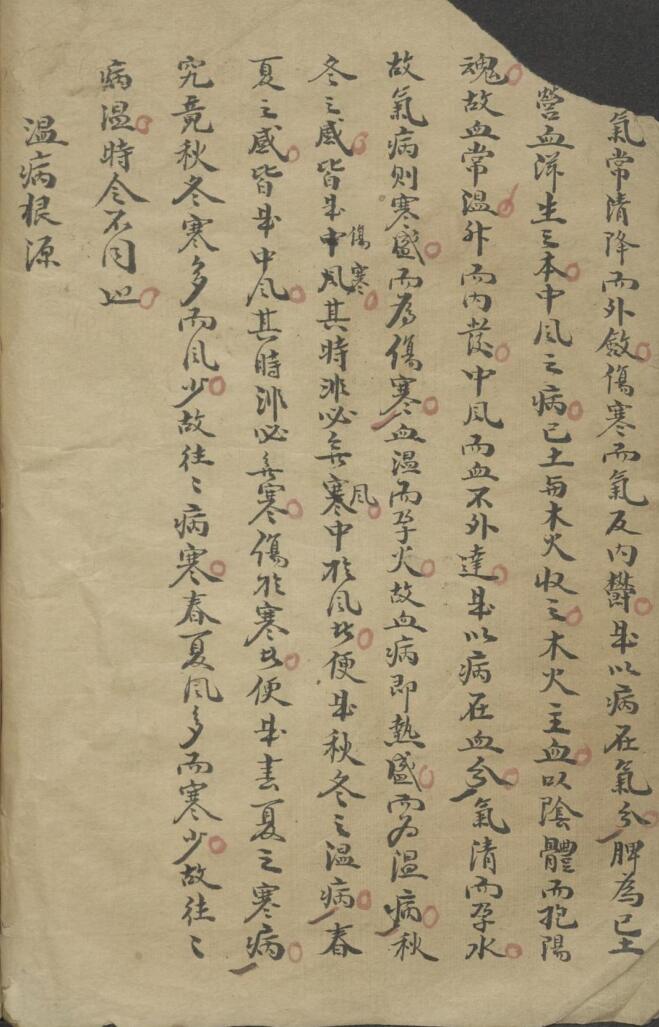 氣常清降而外斂傷寒而氣反内鬱是以病在氣分脾為已土
營血滋生之本中風之病已土與木火收之木火主血以陰體而抱陽
魂故血常溫升而内發中風而血不外達是以病在血分氣清而孕水
故氣病則寒盛而為傷寒血溫而孕火故血病即熱盛而为溫病秋
傷寒
風
冬之感皆是中風其時非必無寒中於風者便是秋冬之溫病春
夏之感皆是中風其時非必無寒傷於寒者便是春夏之寒病
究竟秋冬寒多而風少故往〻病寒春夏風多而寒少故往〻
病溫時令不同也
溫病根源